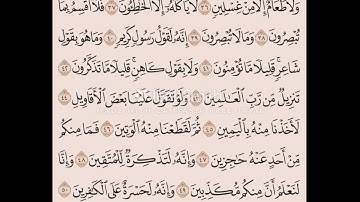 وَلَا طَعَامٌ إِلَّا مِنْ غِسْلِينٍ ٣٦ لَّا يَأْكُلُهُ إِلَّا الْخَاطِئُونَ ٣٧ فَلَا أُقْسِمُ بِمَا
تُبْصِرُونَ ٣٨ وَمَا لَا تُبْصِرُونَ ٣٩ إِنَّهُ لَقَوْلُ رَسُولٍ كَرِيمٍ ٤٠ وَمَا هُوَ بِقَوْلِ
شَاعِرٍ قَلِيلًا مَّا تُؤْمِنُونَ ٤١ وَلَا بِقَوْلِ كَاهِنٍ قَلِيلًا مَّا تَذَكَّرُونَ ٤٢
تَنزِيلٌ مِّن رَّبِّ الْعَالَمِينَ ٤٣ وَلَوْ تَقَوَّلَ عَلَيْنَا بَعْضَ الْأَقَاوِيلِ ٤٤
لَأَخَذْنَا مِنْهُ بِالْيَمِينِ ٤٥ ثُمَّ لَقَطَعْنَا مِنْهُ الْوَتِينَ ٤٦ فَمَا مِنكُم
مِّنْ أَحَدٍ عَنْهُ حَاجِزِينَ ٤٧ وَإِنَّهُ لَتَذْكِرَةٌ لِّلْمُتَّقِينَ ٤٨ وَإِنَّا
لَنَعْلَمُ أَنَّ مِنكُم مُّكَذِّبِينَ ٤٩ وَإِنَّهُ لَحَسْرَةٌ عَلَى الْكَافِرِينَ ٥٠